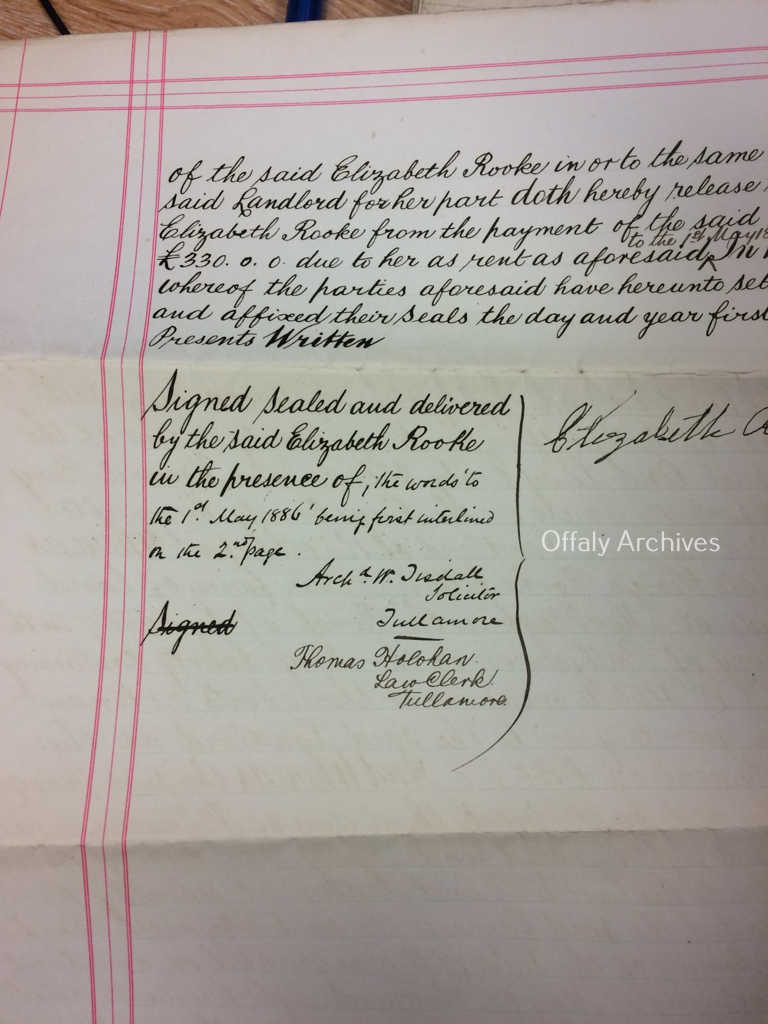 of the said Elizabeth Rooke in or to the same
said Landlord for her part doth hereby release
Elizabeth Rooke from the payment of the said
to the 1st May 18
£330. 0. 0 due to her as rent as aforesaid In
whereof the parties aforesaid have hereunto set
and affixed their seals the day and year first
Presents Written
Signed sealed and delivered
by the said Elizabeth Rooke
in the presence of, the words 'to
the 1st May 1886' being first interlined
on the 2nd page.
Archd. W. Tisdall
Solicitor
Tullamore
Signed
Thomas Holohan
Law Clerk
Tullamore
Elizabeth
Offaly Archives